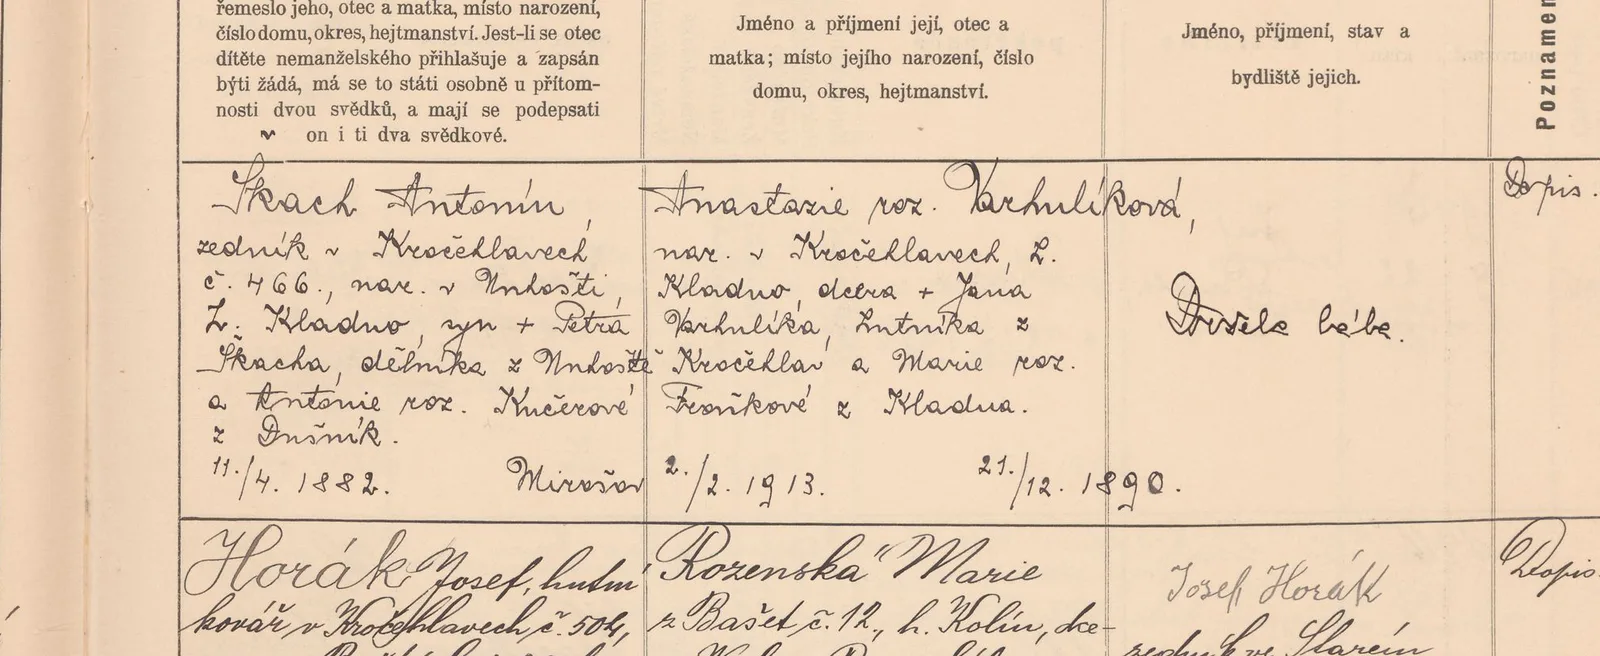 řemeslo jeho, otec a matka, místo narození,
číslo domu, okres, hejtmanství. Jest-li se otec
dítěte nemanželského přihlašuje a zapsán
býti žádá, má se to státi osobně u přítom-
nosti dvou svědků, a mají se podepsati
on i ti dva svědkové.
Jméno a příjmení její, otec a
matka; místo jejího narození, číslo
domu, okres, hejtmanství.
Jméno, příjmení, stav a
bydliště jejich.
Poznamen
Škach Antonín,
zedník v Kročehlavech
č. 466., nar. v Unhošti,
h. Kladno, syn + Petra
Škacha, dělníka z Unhoště
a Antonie roz. Kučerové
z Dušník.
11./4. 1882. Mirošov
Anastazie roz. Varhulíková,
nar. v Kročehlavech, h.
Kladno, dcera + Jana
Varhulíka, hutníka z
Kročehlav a Marie roz.
z Kladna.
2./2. 1913. 21./12. 1890.
bába.
Dopis.
Horák Josef, hutní
kovář v Kročehlavech č. 504,
Rozenská Marie
z Bašet č. 12., h. Kolín, dce-
Josef Horák
zedník ve Starém
Dopis.